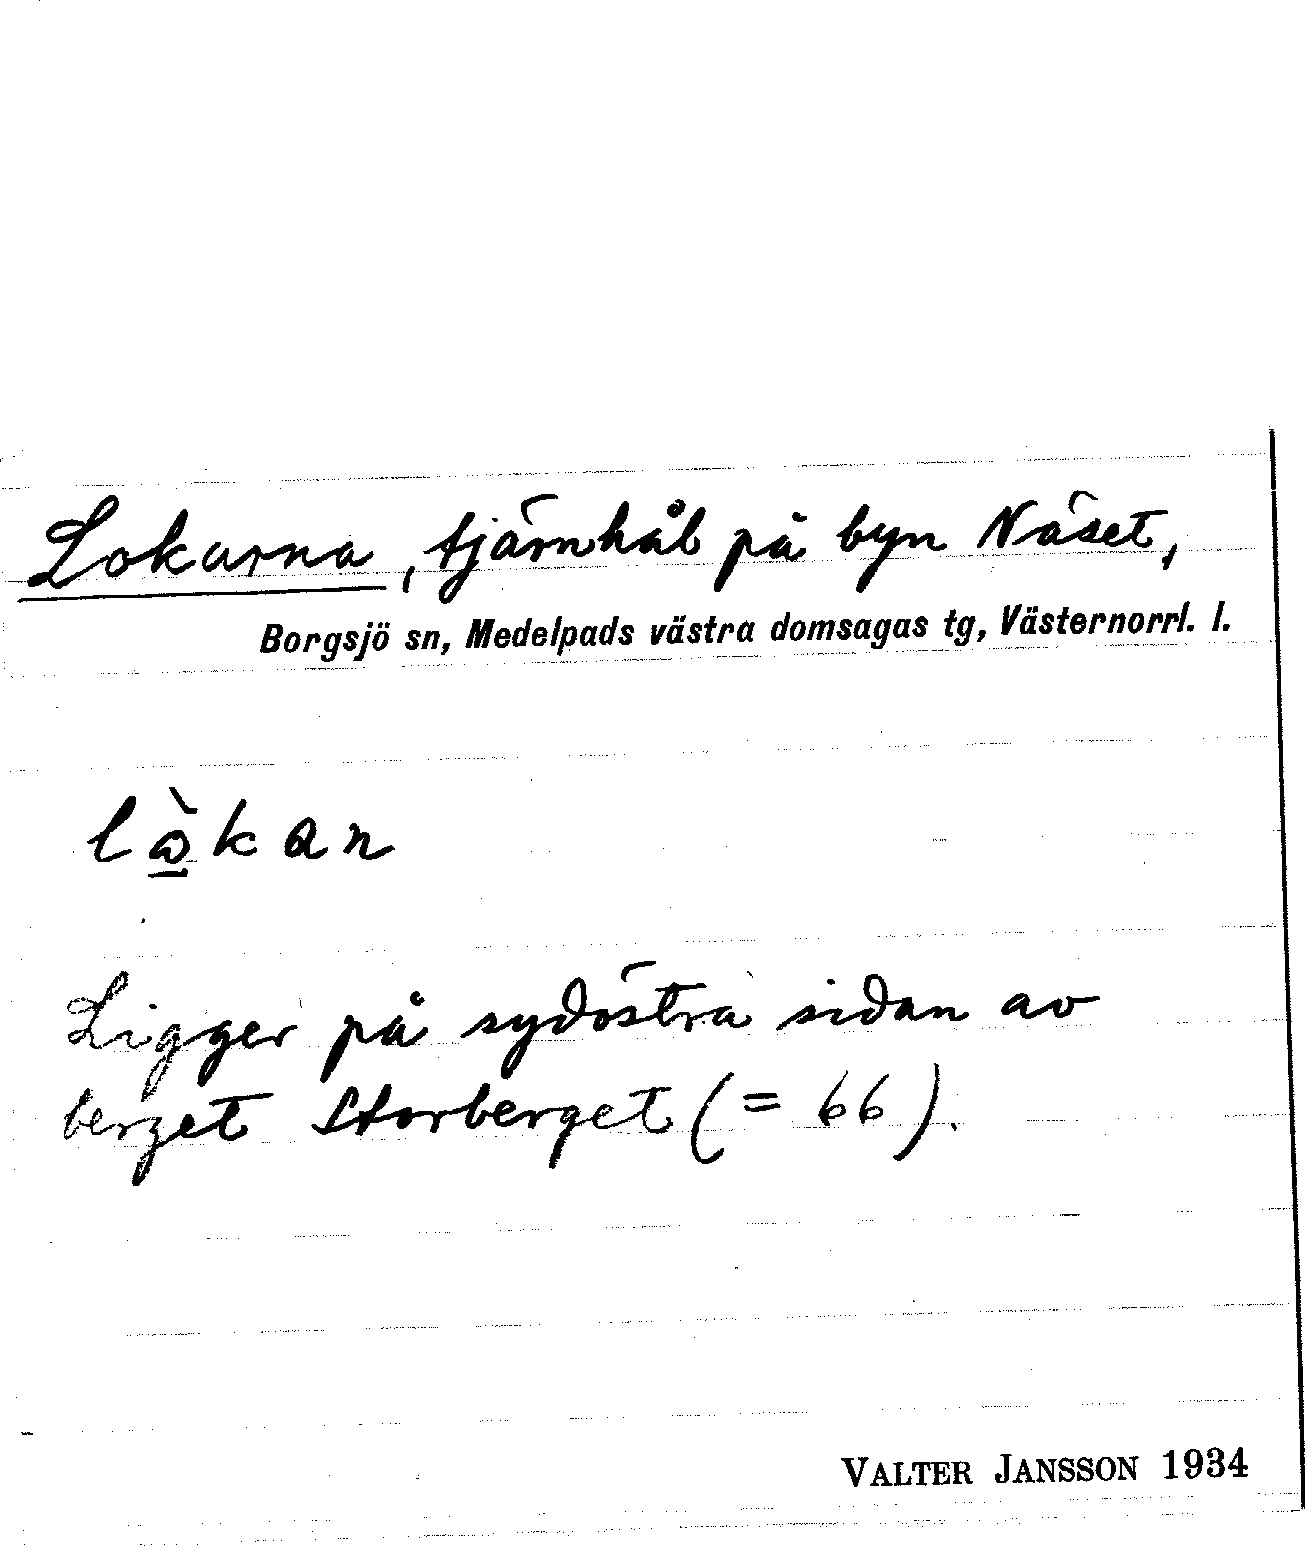 Lokarna, tjärnhål på byn Näset,
Borgsjö sn, Medelpads västra domsagas tg, Västernorrl. l.
lòkan
Ligger på sydöstra sidan av
berget Storberget (= 66).
VALTER JANSSON 1934